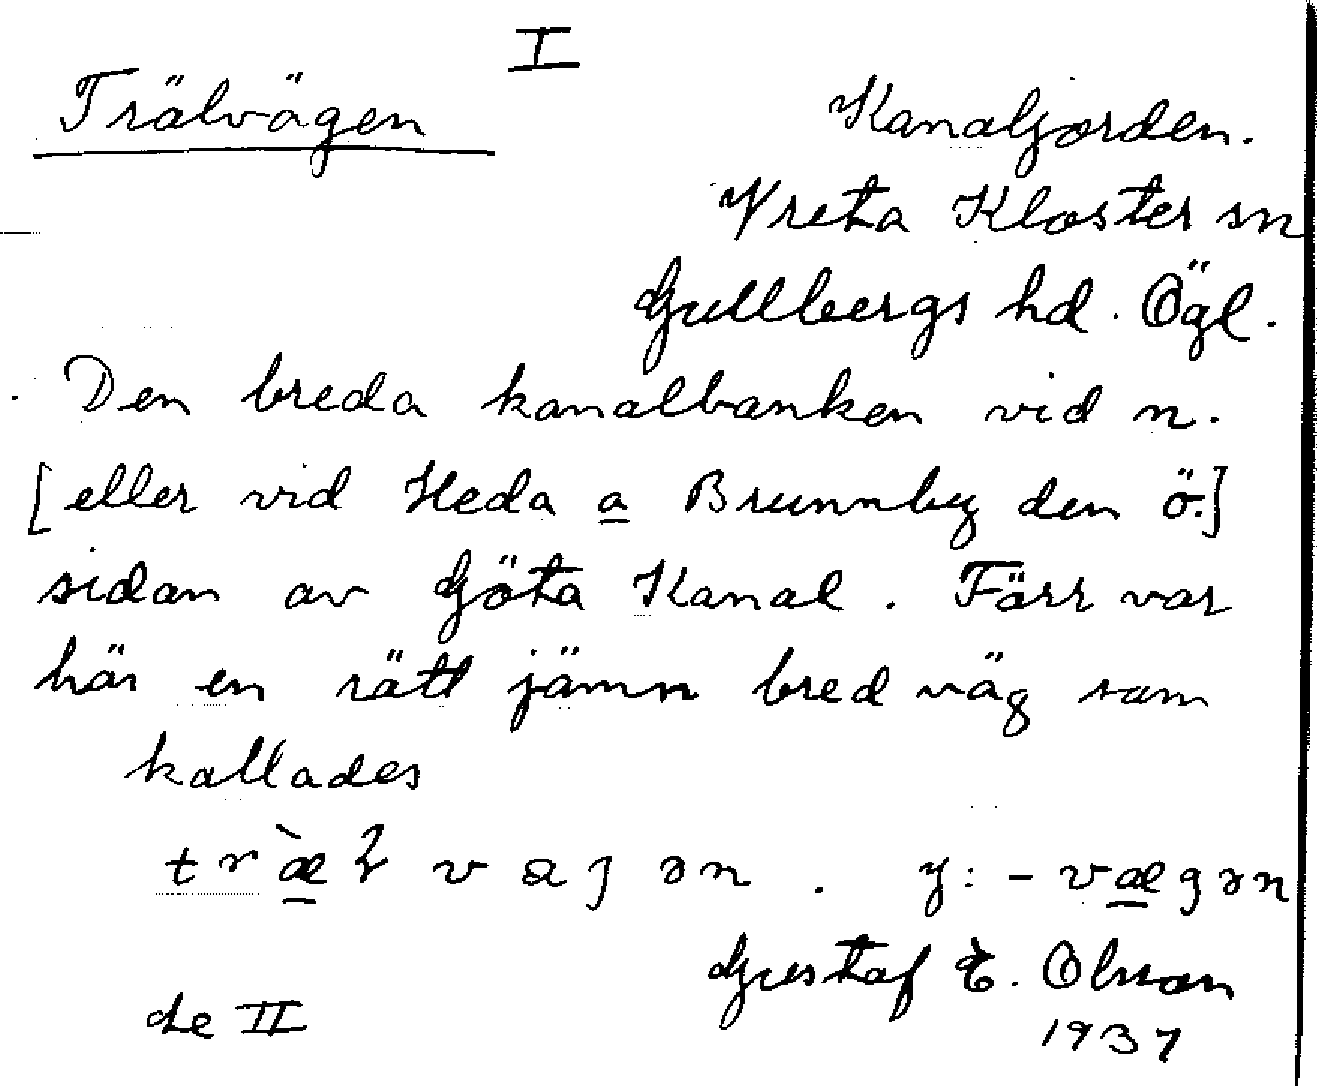 I
Trälvägen
Kanaljorden.
Vreta Kloster sn
Gullbergs hd. Ögl.
Den breda kanalbanken vid n.
[eller vid Heda a Brunnby den ö.]
sidan av Göta Kanal. Förr var
här en rätt jämn bred väg som
kallades
vægən
Gustaf E. Olsson
1937
de II